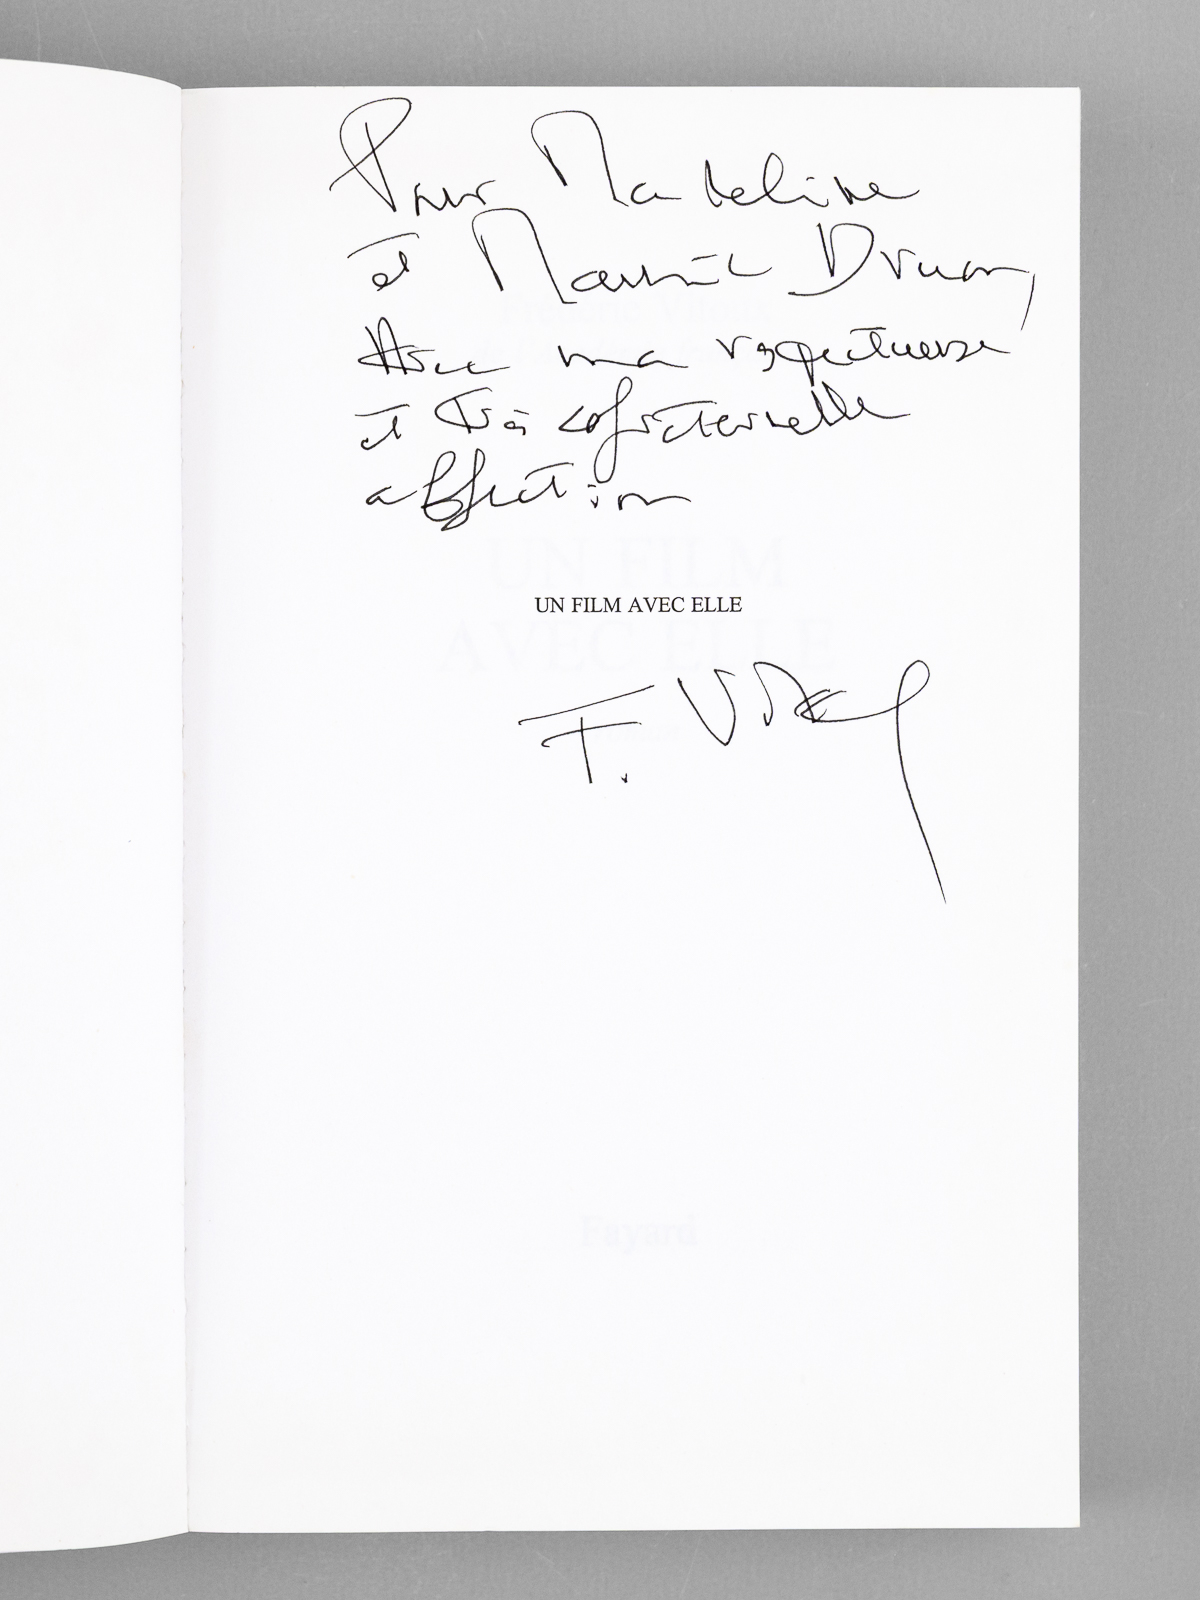 Pour Madeleine
et Maurice Druon,
Avec ma respectueuse
et très confraternelle
affection
UN FILM
UN FILM AVEC ELLE
AVEC ELLE
F. Vitoux
Fayard